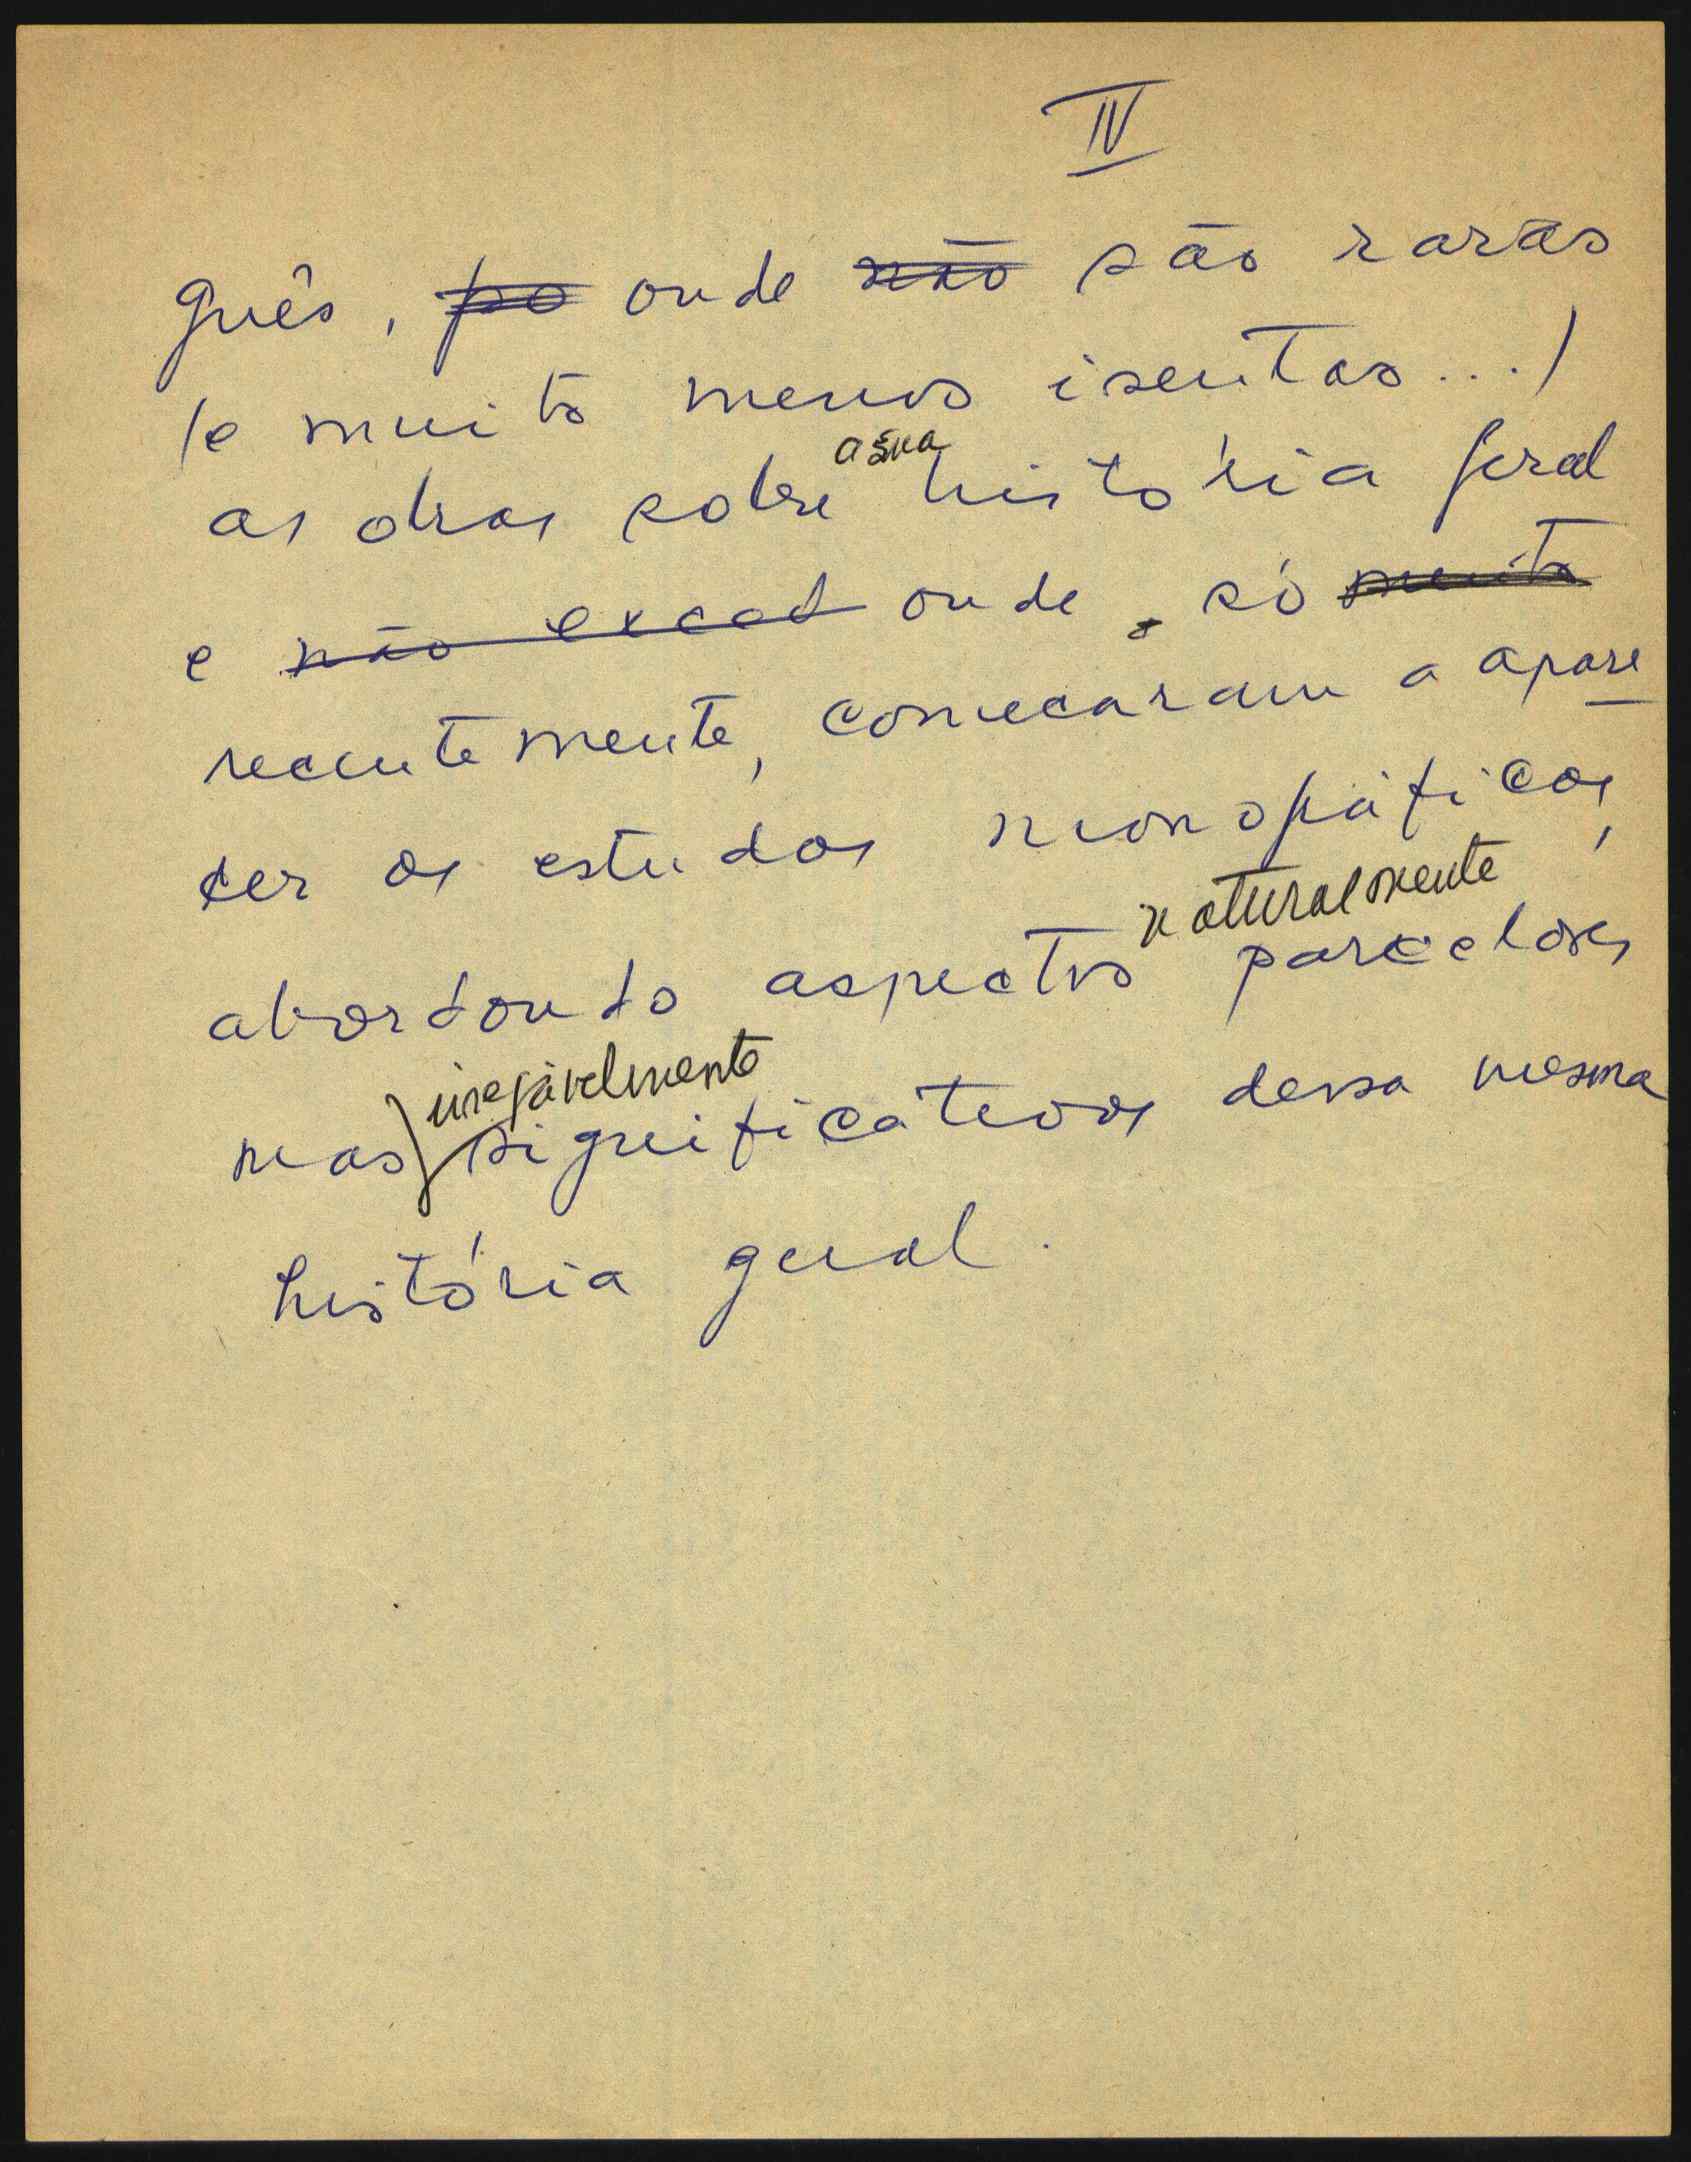 IV
guês, po onde não são raras
(e muito menos isentas...)
as obras sobre a sua história geral
e não exced onde, só muito
recentemente, começaram a apare
cer os estudos monográficos,
abordando aspectos naturalmente parcelares
mas inegávelmente significativos dessa mesma
história geral.